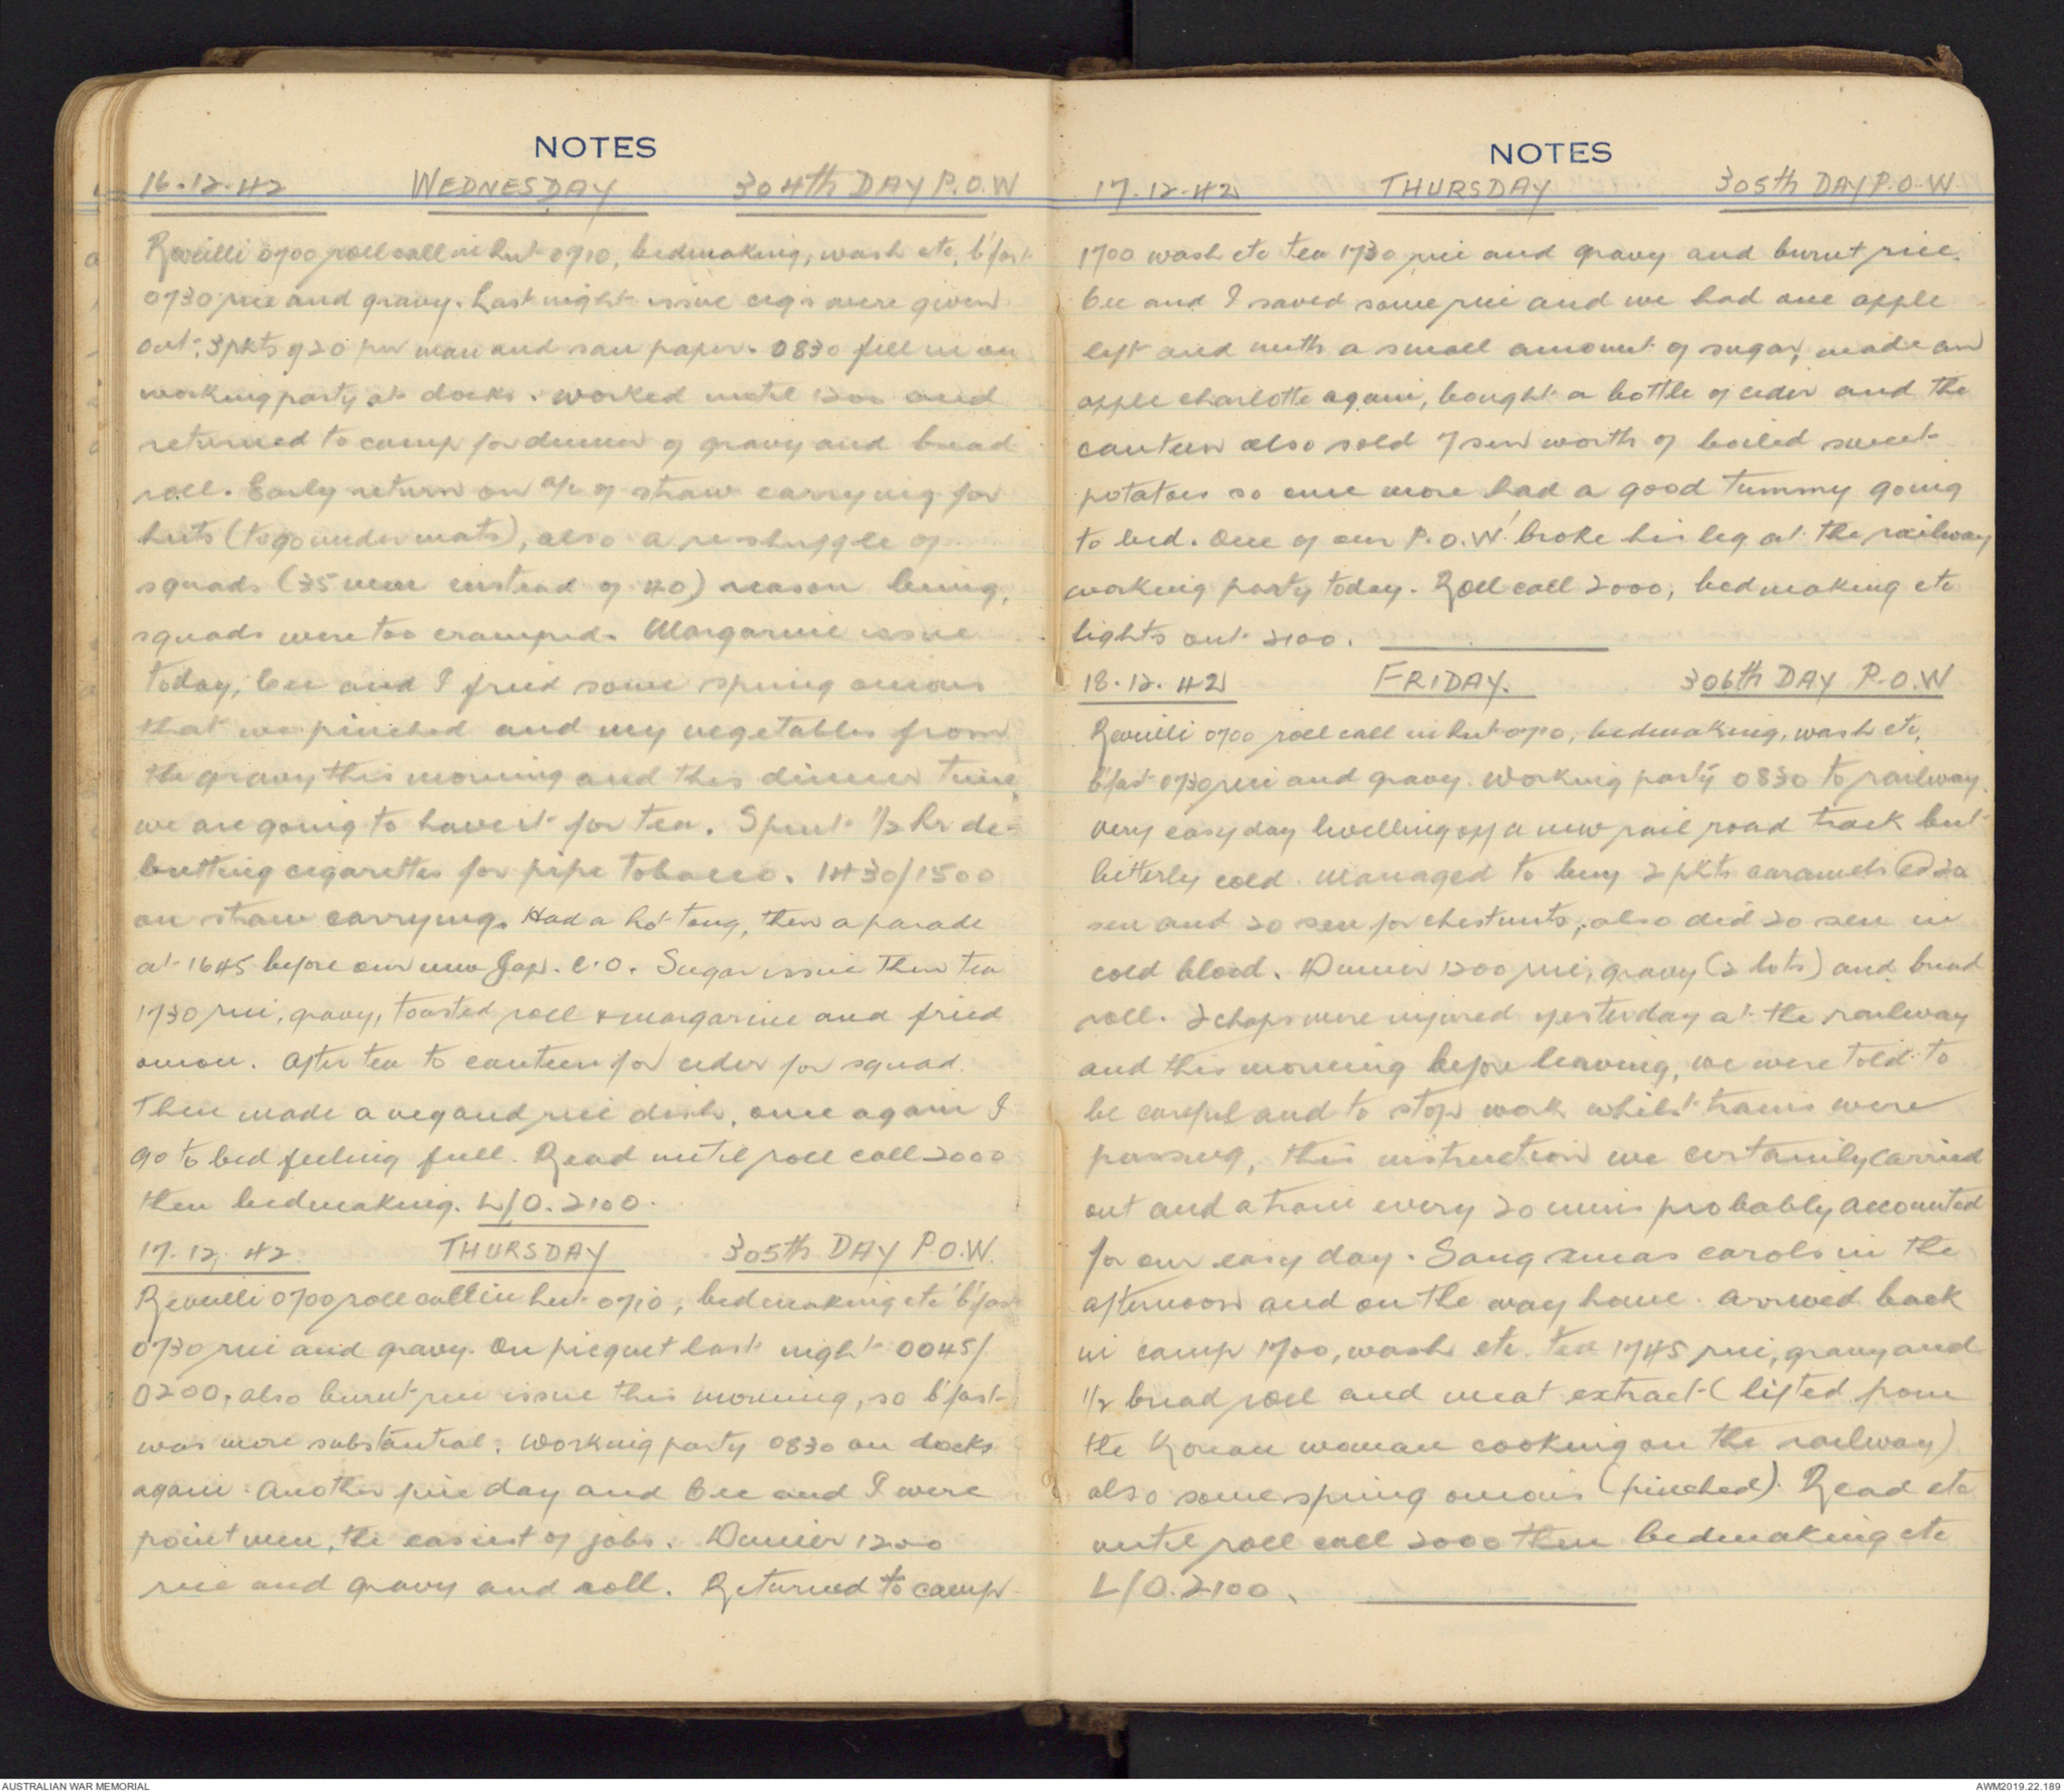 NOTES
16.12.42 WEDNESDAY 304th DAY P.O.W
Reveilli 0700 roll call in hut 0710, bedmaking, wash etc, b'fast
0730 rice and gravy. Last night issue cigs were given
out, 3 pkts of 20 per man and san paper. 0830 fell in on
working party at docks. Worked until 1200 and
returned to camp for dinner of gravy and bread
roll. Early return on a/c of straw carrying for
huts (to go under mats), also a reshuffle of
squads (35 men instead of 40) reason being,
squads were too cramped. Margarine issue
today, Cec and I fried some spring onions
that we pinched and my vegetables from
the gravy this morning and this dinner time,
we are going to have it for tea. Spent 1/2 hr de-
butting cigarettes for pipe tobacco. 1430/1500
on straw carrying. Had a hot tong, then a parade
at 1645 before our new Jap. C.O. Sugar issue then tea
1730 rice, gravy, toasted roll & margarine and fried
onion. After tea to canteen for cider for squad.
Then made a veg and rice dish, once again I
go to bed feeling full. Read until roll call 2000
then bedmaking. L/O. 2100.
17.12.42. THURSDAY 305th DAY P.O.W.
Reveilli 0700 roll call in hut 0710, bedmaking etc b'fast
0730 rice and gravy. On picquet last night 0045/
0200, also burnt rice issue this morning, so b'fast
was more substantial. Working party 0830 on docks
again. Another fine day and Cec and I were
point men, the easiest of jobs. Dinner 1200
rice and gravy and roll. Returned to camp
NOTES
17.12.42 THURSDAY 305th DAY P.O.W
1700 wash etc tea 1730 rice and gravy and burnt rice.
Cec and I saved some rice and we had one apple
left and with a small amount of sugar, made an
apple charlotte again, bought a bottle of cider and the
canteen also sold 7 sen worth of boiled sweet
potatoes so once more had a good tummy going
to bed. One of our P.O.W' broke his leg at the railway
working party today. Roll call 2000, bedmaking etc
lights out 2100.
18.12.42 FRIDAY. 306th DAY P.O.W
Reveilli 0700 roll call in hut 0710, bedmaking, wash etc,
b'fast 0730 rice and gravy. Working party 0830 to railway.
very easy day levelling off a new rail road track but
bitterly cold. Managed to buy 2 pkts caramels @ 20
sen and 20 sen for chestnuts, also did 20 sen in
cold blood. Dinner 1200 rice, gravy (2 lots) and bread
roll. 2 chaps were injured yesterday at the railway
and this morning before leaving, we were told to
be careful and to stop work whilst trains were
passing, this instruction we certainily carried
out and a train every 20 mins probably accounted
for our easy day. Sang xmas carols in the
afternoon and on the way home. Arrived back
in camp 1700, wash etc. tea 1745 rice, gravy and
1/2 bread roll and meat extract (lifted from
the Korean woman cooking on the railway)
also some spring onions (pinched). Read etc
until roll call 2000 then bedmaking etc
L/O. 2100.
AUSTRALIAN WAR MEMORIAL
AWM2019.22.189